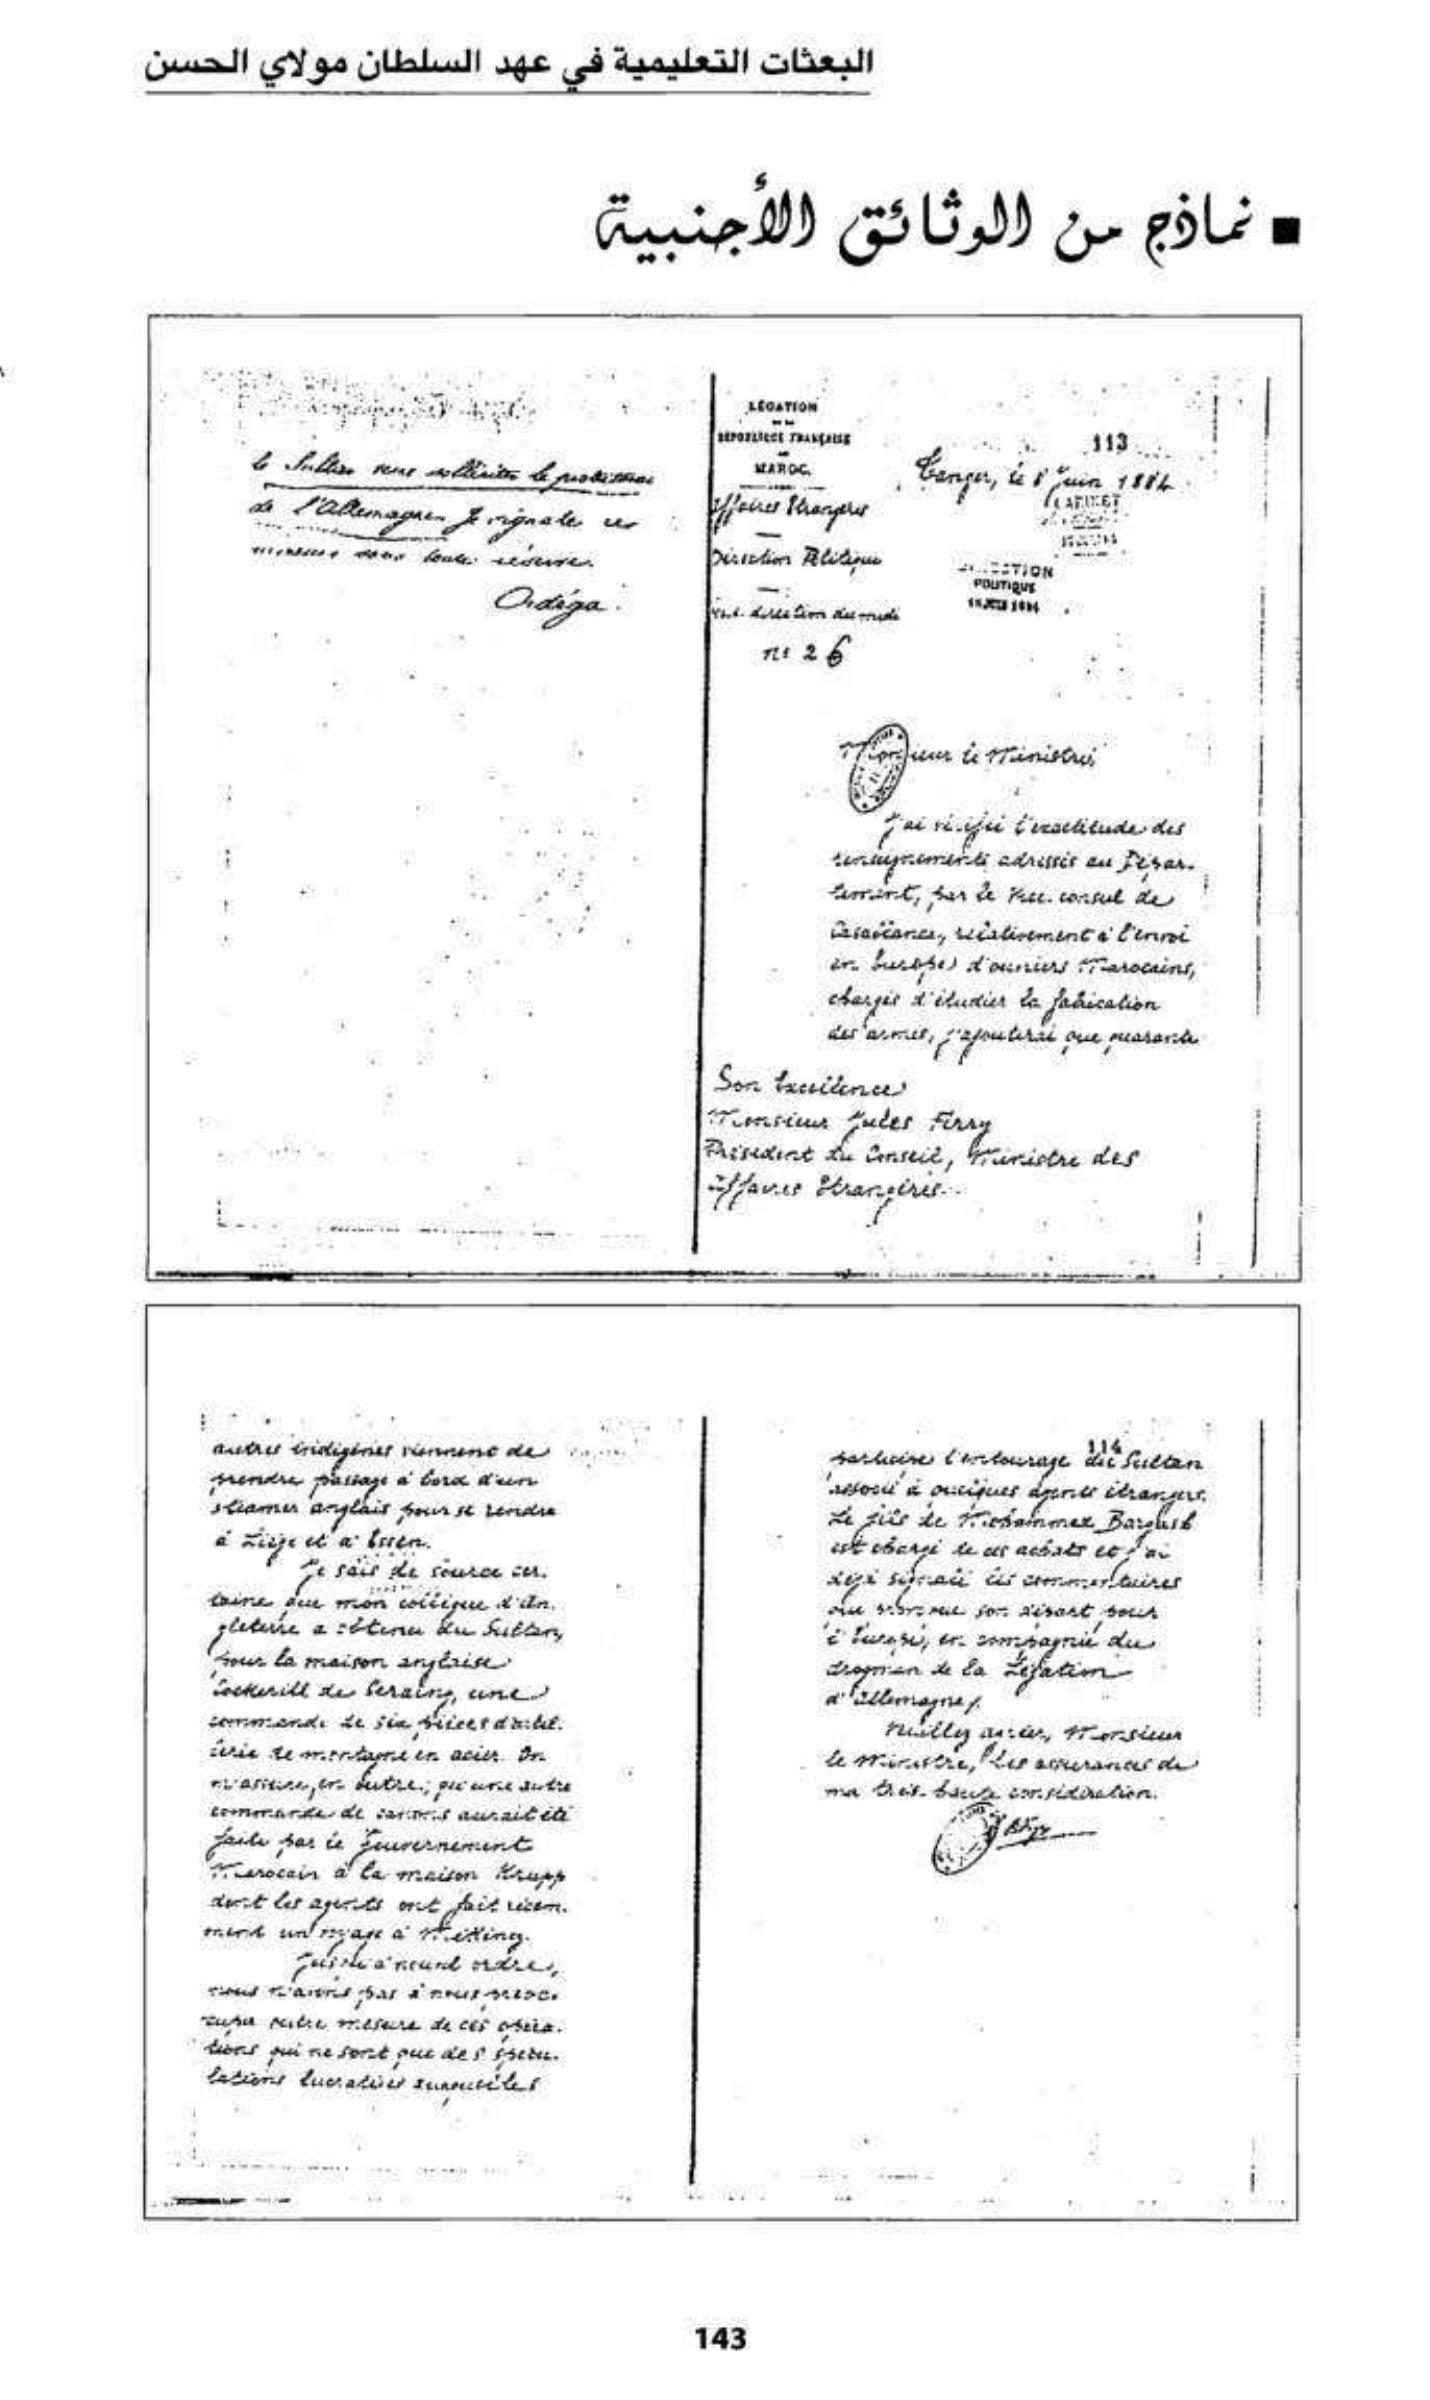 البعثات التعليمية في عهد السلطان مولاي الحسن
■ نماذج من الوثائق الأجنبية
le Sultan sollicite la
de l'Allemagne. Je signale
sous toute réserve.
Ordéga
LÉGATION
DE LA
RÉPUBLIQUE FRANÇAISE
AU
MAROC.
Affaires Etrangères
Direction Politique
direction du midi
n° 26
113
Tanger, le 8 Juin 1884
CABINET
DIRECTION
POLITIQUE
JUIN 1884
Monsieur le Ministre,
J'ai vérifié l'exactitude des
renseignements adressés au Dépar-
tement, par le Vice-consul de
Casablanca, relativement à l'envoi
en Europe d'ouvriers Marocains,
chargés d'étudier la fabrication
des armes, j'ajouterai que quarante
Son Excellence
Monsieur Jules Ferry
Président du Conseil, Ministre des
Affaires Etrangères.
autres indigènes viennent de
prendre passage à bord d'un
steamer anglais pour se rendre
à Liège et à Essen.
Je sais de source cer-
taine que mon collègue d'An-
gleterre a obtenu du Sultan,
pour la maison anglaise
Cockerill de Seraing, une
commande de six pièces d'artil-
lerie de montagne en acier. On
m'assure, en outre, qu'une autre
commande de canons aurait été
faite par le Gouvernement
Marocain à la maison Krupp
dont les agents ont fait récem-
ment un voyage à
Jusqu'à nouvel ordre,
nous n'avons pas à nous préoc-
cuper outre mesure de ces opéra-
tions qui ne sont que des spécu-
lations lucratives auxquelles
114
participe l'entourage du Sultan
associé à quelques agents étrangers.
Le fils de Mohammed Bargash
est chargé de ces achats et j'ai
déjà signalé les commentaires
que son départ pour
l'Europe, en compagnie du
drogman de la Légation
d'Allemagne.
Veuillez agréer, Monsieur
le Ministre, les assurances de
ma très haute considération.
143